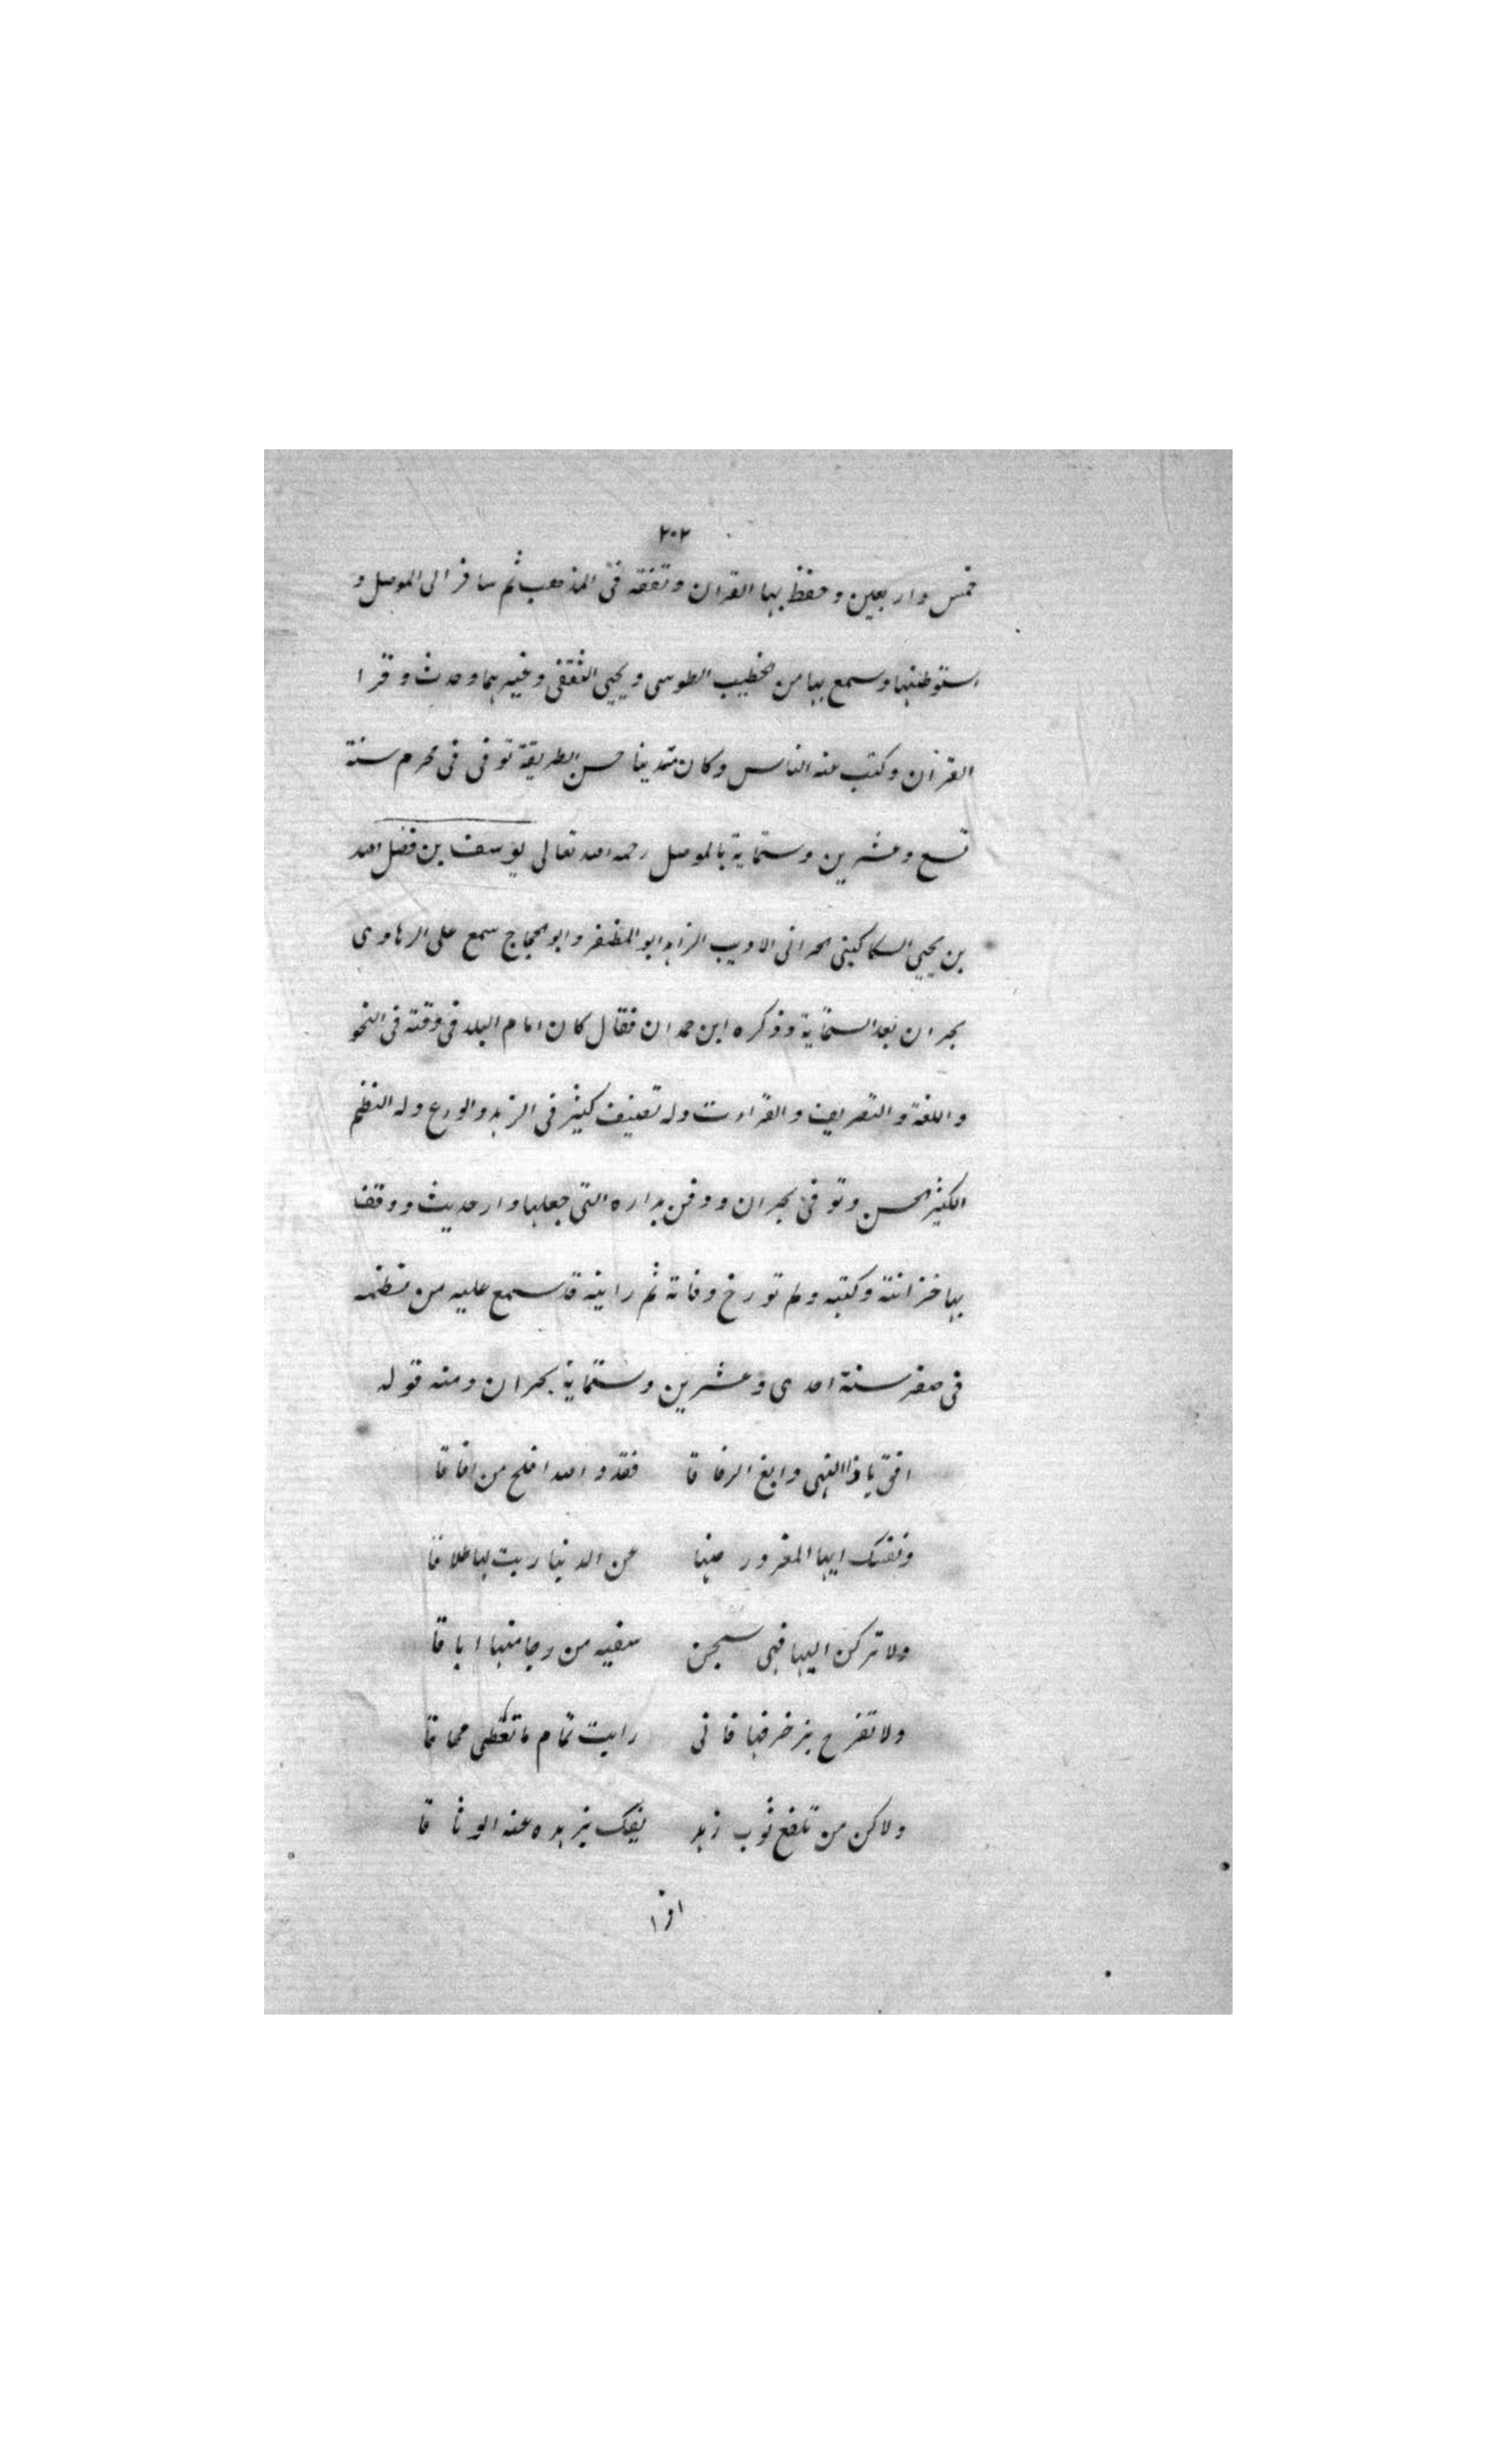 ٢٠٢
خمس واربعين وحفظ بها القران وتفقه فى المذهب ثم سافر الى الموصل و
استوطنها وسمع بها من خطيب الطوسى ويحيى الثقفى وغيرهما وحدث وقرا
القران وكتب عنه الناس وكان متدينا حسن الطريقة توفى فى محرم سنة
تسع وعشرين وستماية بالموصل رحمه الله تعالى يوسف بن فضل الله
بن يحيى السكاكينى الحرانى الاديب الزاهد ابو المظفر وابو الحجاج سمع على الرهاوى
بحران بعد الستماية وذكره ابن حمدان فقال كان امام البلد فى وقته فى النحو
واللغة والتصريف والقراءت وله تصنيف كثير فى الزهد والورع وله النظم
الكثير الحسن وتوفى بحران ودفن بداره التى جعلها دار حديث ووقف
بها خزانته وكتبه ولم تورخ وفاته ثم رايته قد سمع عليه من نظمه
فى صفر سنة احدى وعشرين وستماية بحران ومنه قوله
افق ياذا النهى وابغ الرفاقا فقد والله افلح من افاقا
ونفسك ايها المغرور صنها عن الدنيا وبت لها طلاقا
ولا تركن اليها فهى سجن سفيه من رجا منها اباقا
ولا تفرح بزخرفها فانى رايت تمام ما تعطى محاقا
ولاكن من تلفع ثوب زهد يفك بزهده عنه الوثاقا
اذا